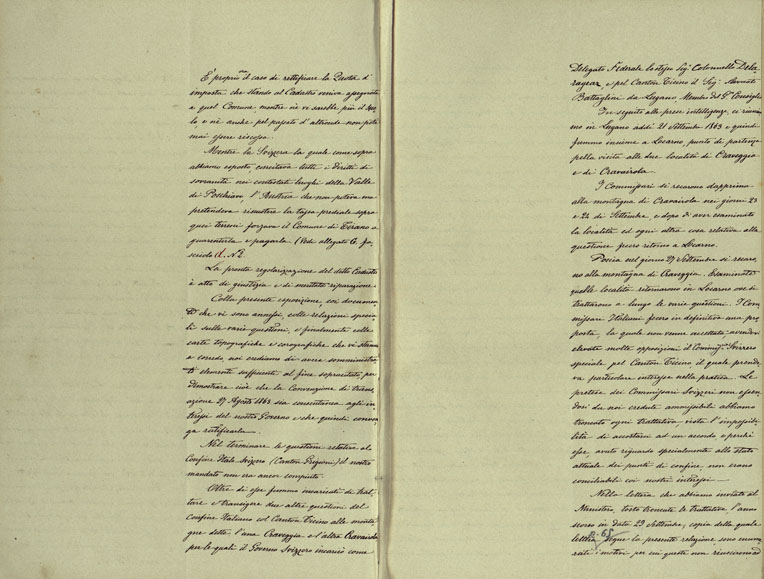 È proprio il caso di rettificare la Quota d'
imposta che stando al Catastro veniva assegnata
a quel Comune mentre nè vi sarebbe più il tito-
lo e nè anche pel passato d'altronde non potè
mai essere riscossa.
Mentre la Svizzera la quale come sopra
abbiamo esposto, esercitava tutti i diritti di
sovranità nei contestati luoghi della Valle
di Poschiavo, l'Austria che non poteva ma
pretendeva riscuotere la tassa prediale sopra
quei terreni forzava il Comune di Tirano a
guarentirla e pagarla. (Vedi allegato C. fa-
scicolo A. N. 2.
La pronta regolarizzazione del detto Catastro
è atto di giustizia e di meritata riparazione.
Colla presente esposizione, coi documen-
ti che vi sono annessi, colle relazioni specia-
li sulle varie questioni, e finalmente colle
carte topografiche e corografiche che vi stanno
a corredo, noi crediamo di avere somministra-
ti elementi sufficienti al fine sopracitato, per
dimostrare cioè che la Convenzione di transa-
zione 27 Agosto 1863 sia consentanea agli in-
teressi del nostro Governo e che quindi conven-
ga ratificarla.
Nel terminare le questioni relative al
Confine Italo Svizzero (Canton Grigioni) il nostro
mandato non era ancor compiuto.
Oltre di esse fummo incaricati di trat-
tare e transigere due altre questioni del
confine Italiano col Canton Ticino alle monta-
gne dette l'una Craveggia e l'altra Cravairola
per le quali il Governo Svizzero incaricò come
Delegato Federale lo stesso Sig. Colonnello Dela-
rageaz, e pel Canton Ticino il Sig. Avvocato
Battaglini da Lugano, Membro del G. Consiglio
In seguito alle prese intelligenze, ci riunim-
mo in Lugano addì 21 Settembre 1863 e quindi
fummo insieme a Locarno, punto di partenza
pella visita alle due località di Craveggia
e di Cravairola.
I Commissari si recarono dapprima
alla montagna di Cravairola nei giorni 23
e 24 di Settembre, e dopo di aver esaminato
la località ed ogni altra cosa relativa alla
questione fecero ritorno a Locarno.
Poscia nel giorno 27 Settembre si recaro-
no alla montagna di Craveggia. Esaminate
quelle località ritornarono in Locarno ove si
trattarono a lungo le varie questioni. I Com-
missari Italiani fecero in definitiva una pro-
posta, la quale non venne accettata, avendo
elevate molte opposizioni il Commiss. Svizzero
speciale pel Canton Ticino il quale prende-
va particolare interesse nella pratica. Le
pretese dei Commissari Svizzeri non essen-
dosi da noi credute ammissibili abbiamo
troncato ogni trattativa vista l'impossibi-
lità di accostarci ad un accordo e perchè
esse avuto riguardo specialmente allo stato
attuale dei punti di confine non erano
conciliabili coi nostri interessi.
Nella lettera che abbiamo inviata al
Ministero, tosto troncate le trattative l'anno
scorso in data 29 Settembre, copia della quale
lettera segue la presente relazione sono enume-
rati i motivi per cui queste non riuscirono ad